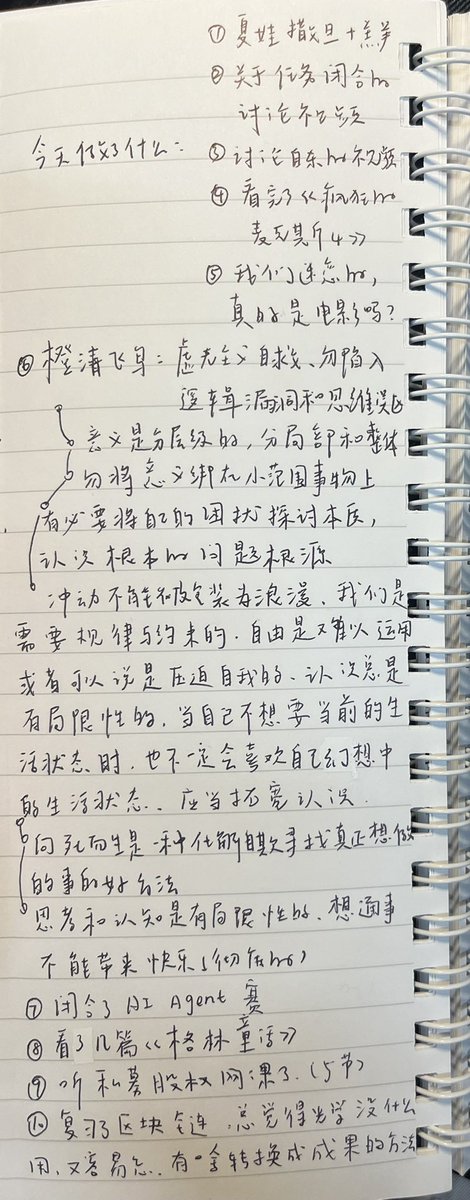 ① 夏娃 撒旦 + 羔羊
② 关于任务闭合的
讨论视频
今天做了什么：
③ 讨论自杀的视频
④ 看完了《疯狂的
麦克斯4》
⑤ 我们迷恋的，
真的是电影吗？
⑥ 澄清飞舟：虚无主义自救、勿陷入
逻辑漏洞和思维误区
意义是分层级的，分局部和整体
勿将意义绑在小范围事物上
有必要将自己的困扰探讨本质，
认识根本的问题根源
冲动不能被包装为浪漫、我们是
需要规律与约束的．自由是又难以运用
或者可以说是压迫自我的、认识总是
有局限性的，当自己不想要当前的生
活状态时，也不一定会喜欢自己幻想中
的生活状态．应当拓宽认识．
向死而生是一种化解自欺寻找真正想做
的事的好方法
思考和认知是有局限性的、想通事
不能带来快乐（彻底的）
⑦ 闭合了 AI Agent 赛
⑧ 看了几篇《格林童话》
⑨ 听私募股权网课了．（5节）
⑩ 复习了区块链．总觉得光学没什么
用，又容易忘．有啥转换成成果的方法